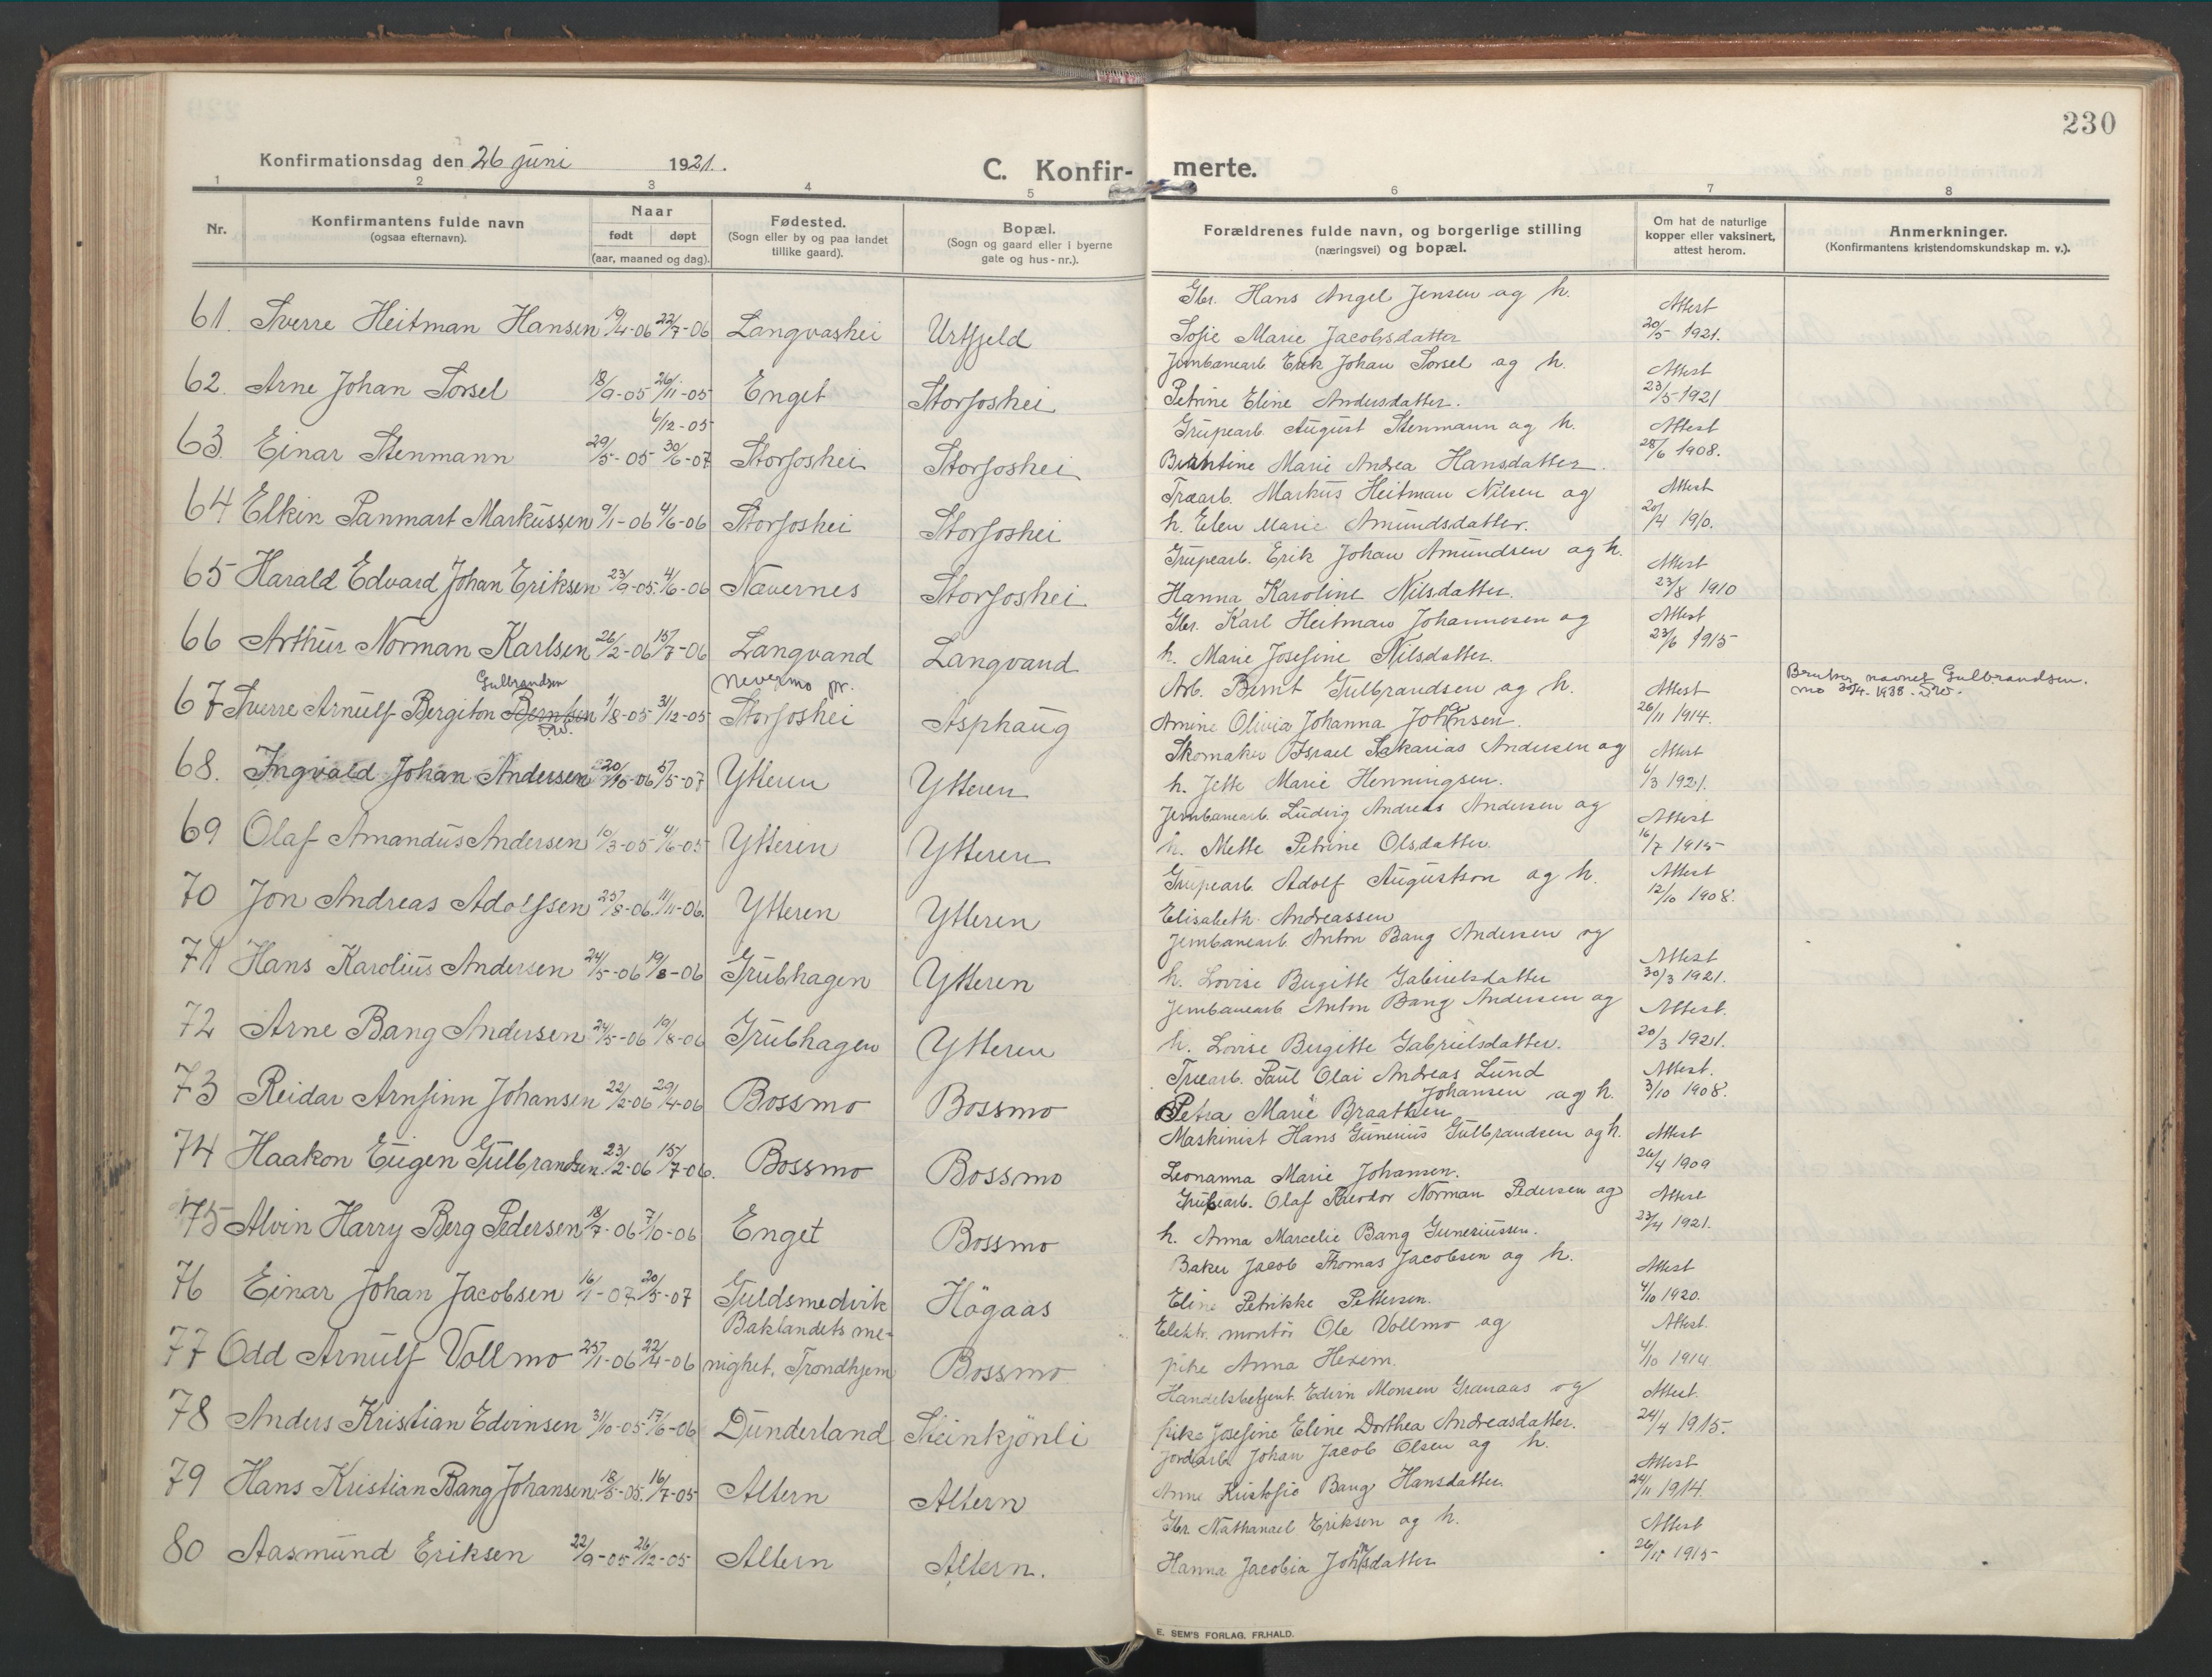 230
Konfirmationsdag den 26 juni 1921.
C. Konfir- merte.
1 2 3 4 5 6 7 8
Nr.
Konfirmantens fulde navn
(ogsaa efternavn).
Naar
født døpt
(aar, maaned og dag).
Fødested.
(Sogn eller by og paa landet
tillike gaard).
Bopæl.
(Sogn og gaard eller i byerne
gate og hus-nr.).
Forældrenes fulde navn, og borgerlige stilling
(næringsvei) og bopæl.
Om hat de naturlige
kopper eller vaksinert,
attest herom.
Anmerkninger.
(Konfirmantens kristendomskundskap m. v.).
Gbr. Hans Angel Jensen og h. Attest
61. Sverre Heitman Hansen 19/4-06 22/7-06 Langvashei Urtfjeld Sofie Marie Jacobsdatter 20/5 1921.
Jernbanearb. Erik Johan Sorsel og h. Attest
62. Arne Johan Sorsel 18/9-05 26/11-05 Enget Storfoshei Petrine Eline Andersdatter. 23/5-1921
6/12-05 Grupearb. August Stenmann og h. Attest
63. Einar Stenmann 29/5-05 30/6-07 Storfoshei Storfoshei Marie Andrea Hansdatter. 28/6 1908.
Træarb. Markus Heitman Nilsen og Attest
64 Elkin Panmart Markussen 9/1-06 4/6-06 Storfoshei Storfoshei h. Elen Marie Amundsdatter. 20/4 1910.
Grupearb. Erik Johan Amundsen og h. Attest
65 Harald Edvard Johan Eriksen 23/9-05. 4/6-06 Nævernes Storfoshei Hanna Karoline Nilsdatter. 23/8 1910
Gbr. Karl Heitman Johannesen og Attest
66 Arthur Norman Karlsen 26/2-06 15/7-06 Langvand Langvand h. Marie Josefine Nilsdatter. 23/6 1915
Gulbrandsen Nevermo pr. Arb. Bernt Gulbrandsen og h. Attest Bruker navnet Gulbrandsen.
67 Sverre Arnulf Bergiton Berntsen 1/8-05 31/12-05 Storfoshei Asphaug Amine Olivia Johanna Johansen. 26/11 1914. mo 30/4-1938.
Skomaker Israel Sakarias Andersen og Attest
68. Ingvald Johan Andersen 20/10-06 5/5-07 Ytteren Ytteren h. Jette Marie Henningsen. 6/3 1921.
Jernbanearb. Ludvig Andreas Andersen og Attest
69 Olaf Amandus Andersen 10/3-05 4/6-05 Ytteren Ytteren h. Mette Petrine Olsdatter. 16/7 1915
Grupearb. Adolf Augustson og h. Attest
70 Jon Andreas Adolfsen 25/8-06. 11/11-06. Ytteren Ytteren Elisabeth Andreassen 12/10 1908.
Jernbanearb Anton Bang Andersen og Attest
71 Hans Karolius Andersen 24/5-06 19/8-06 Grubhagen Ytteren h. Lovise Bergitte Gabrielsdatter 30/3 1921.
Jernbanearb Anton Bang Andersen og Attest.
72 Arne Bang Andersen 24/5-06 19/8-06 Grubhagen Ytteren h. Lovise Bergitte Gabrielsdatter. 20/3 1921.
Træarb. Paul Olai Andreas Lund Attest.
Johansen og h.
73 Reidar Arnfinn Johansen 22/2-06 29/4-06 Bossmo Bossmo Petra Marie Braathen 3/10 1908.
Maskinist Hans Gunerius Gulbrandsen og h. Attest
74 Haakon Eugen Gulbrandsen. 23/2-06 15/7-06. Bossmo Bossmo Leonanna Marie Johansen. 26/4 1909
Grubearb. Olaf Teodor Norman Pedersen og Attest
75 Alvin Harry Berg Pedersen 18/7-06 7/10-06 Enget Bossmo h. Anna Marcelie Bang Guneriussen. 23/4 1921.
Baker Jacob Thomas Jacobsen og h. Attest
76 Einar Johan Jacobsen 16/1-07 20/5-07 Guldsmedvik Högaas Eline Petrikke Pettersen. 4/10 1920.
Baklandets me- Elektr. montör Ole Vollmo og Attest.
77 Odd Arnulf Vollmo 25/1-06 22/4-06 nighet, Trondhjem Bossmo pike Anna Hexem. 4/10 1914
Handelsbetjent. Edvin Monsen Granaas og Attest.
78 Anders Kristian Edvinsen 31/10-05 17/6-06 Dunderland Steinkjönli pike Josefine Eline Dorthea Andreasdatter. 24/4 1915.
Jordarb. Johan Jacob Olsen og h. Attest
79 Hans Kristian Bang Johansen. 18/5-05. 16/7-05 Altern Altern Anne Kristofie Bang Hansdatter 24/11 1914.
Gbr. Nathanael Eriksen og h. Attest
80 Aasmund Eriksen 22/9-05 26/12-05 Altern Altern. Hanna Jacobia Johnsdatter 26/11 1915
E. SEM'S FORLAG, FR.HALD.